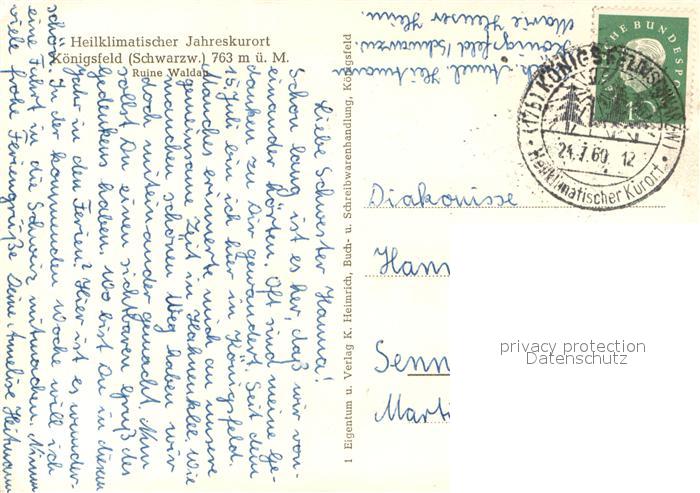 Heilklimatischer Jahreskurort
Königsfeld (Schwarzw.) 763 m ü. M.
Ruine Waldau
Liebe Schwester Hanna!
Schon lang ist es her, daß wir von-
einander hörten. Oft sind meine Ge-
danken zu Dir gewandert. Seit dem
15. Juli bin ich hier in Königsfeld.
Manches erinnerte mich an unsere
gemeinsame Zeit in Hahnenklee. Wie
manchen schönen Weg haben wir
doch miteinander gemacht. Nun
sollst Du einen sichtbaren Gruß des
Gedenkens haben. Wo bist Du in diesem
Jahr in den Ferien? Hier ist es wunder-
schön. In der kommenden Woche will ich
eine Fahrt in die Schweiz mitmachen. Nimm
viele frohe Feriengrüße Deine Annelise Heitmann
1 Eigentum u. Verlag K. Heimrich, Buch- u. Schreibwarenhandlung, Königsfeld
Heitmann
Königsfeld/Schwarzw.
HE BUNDESPO
(17b) KÖNIGSFELD
21.7.60. 12
Heilklimatischer Kurort
Diakonisse
Hann
Senn
Marti
privacy protection
Datenschutz